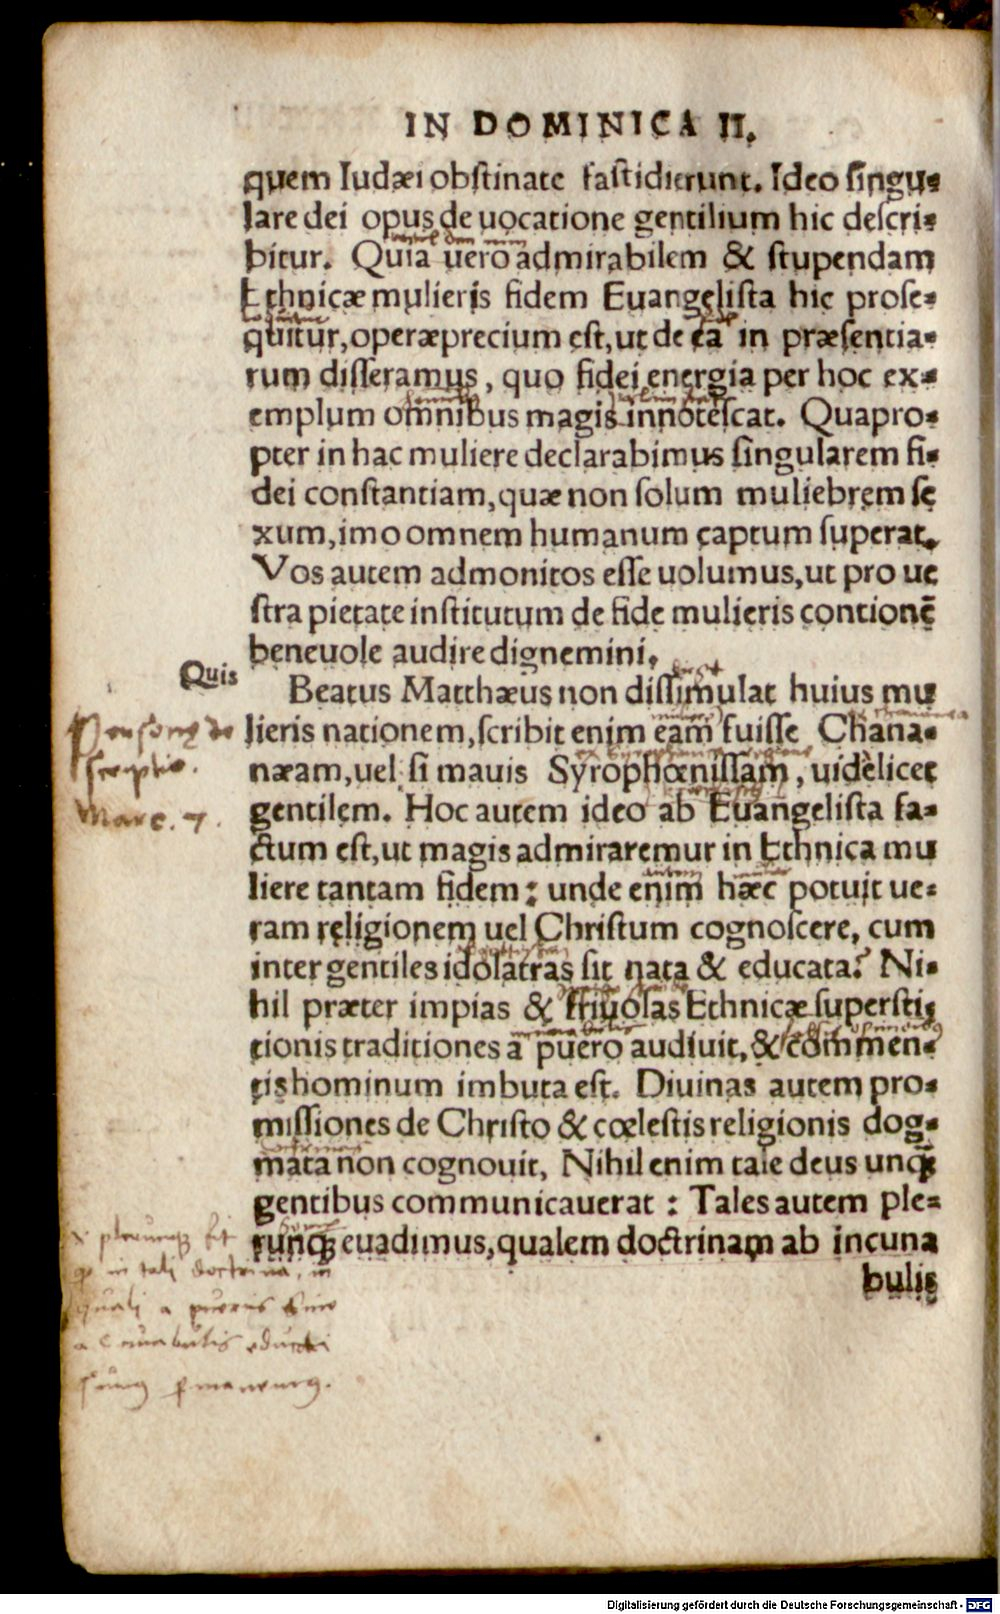 IN DOMINICA II.
quem Iudæi obstinate fastidierunt. Ideo singu-
lare dei opus de uocatione gentilium hic descri-
bitur. Quia uero admirabilem & stupendam
Ethnicæ mulieris fidem Euangelista hic prose-
quitur, operæprecium est, ut de ea in præsentia-
rum disseramus, quo fidei energia per hoc ex-
emplum omnibus magis innotescat. Quapro-
pter in hac muliere declarabimus singularem fi-
dei constantiam, quæ non solum muliebrem se
xum, imo omnem humanum captum superat.
Vos autem admonitos esse uolumus, ut pro ue
stra pietate institutum de fide mulieris contionē
beneuole audire dignemini.
Quis
Beatus Matthæus non dissimulat huius mu
lieris nationem, scribit enim eam fuisse Chana-
næam, uel si mauis Syrophœnissam, uidelicet
gentilem. Hoc autem ideo ab Euangelista fa-
ctum est, ut magis admiraremur in Ethnica mu
liere tantam fidem: unde enim hæc potuit ue-
ram religionem uel Christum cognoscere, cum
inter gentiles idolatras sit nata & educata? Ni-
hil præter impias & friuolas Ethnicæ supersti-
tionis traditiones a puero audiuit, & commen-
tis hominum imbuta est. Diuinas autem pro-
missiones de Christo & cœlestis religionis dog-
mata non cognouit, Nihil enim tale deus unq̃
gentibus communicauerat: Tales autem ple-
runq; euadimus, qualem doctrinam ab incuna
bulis
Personę de
scriptio.
Marc. 7.
plerunq; fit
in tali doctrina, in
quali a pueris siue
a cunabulis educati
sumus permanemus.
Digitalisierung gefördert durch die Deutsche Forschungsgemeinschaft - DFG